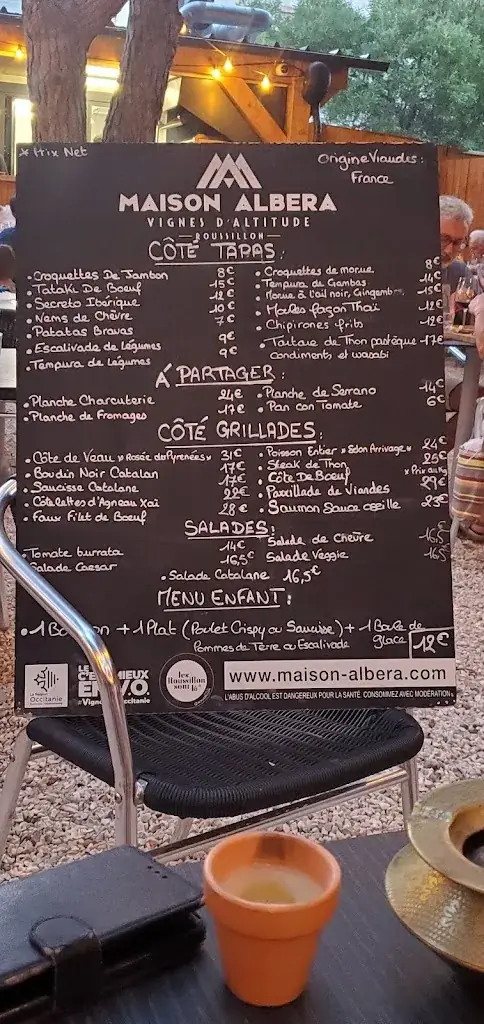 * Prix Net
Origine Viandes :
France
MAISON ALBERA
VIGNES D'ALTITUDE
ROUSSILLON
CÔTÉ TAPAS :
• Croquettes De Jambon 8€
• Tataki De Boeuf 15€
• Secreto Ibérique 12€
• Nems de Chèvre 10€
• Patatas Bravas 7€
• Escalivade de Légumes 9€
• Tempura de Légumes 9€
• Croquettes de morue 8€
• Tempura de Gambas 14€
• Morue à l'ail noir, Gingemb 15€
• Moules façon Thaï 12€
• Chipirones frits 12€
• Tartare de Thon pastèque 17€
condiments et wasabi
À PARTAGER :
• Planche Charcuterie 24€
• Planche de Fromages 17€
• Planche de Serrano 14€
• Pan con Tomate 6€
CÔTÉ GRILLADES :
• Côte de Veau "Rosée des Pyrénées" 31€
• Boudin Noir Catalan 17€
• Saucisse Catalane 17€
• Côtelettes d'Agneau Xaï 22€
• Faux Filet de Boeuf 28€
• Poisson Entier "Selon Arrivage" 24€
• Steak de Thon 25€
• Côte De Boeuf * Prix au Kg
• Parillade de Viandes 29€
• Saumon Sauce oseille 23€
SALADES :
• Tomate burrata 14€
• Salade Caesar 16,5€
Salade de Chèvre 16,5
Salade Veggie 16,5
• Salade Catalane 16,5€
MENU ENFANT :
• 1 Bo on + 1 Plat (Poulet Crispy ou Saucisse) + 1 Boule de
Pommes de Terre ou Escalivade glace 12€
La Région
Occitanie
LE
C'E MIEUX
E V.O.
#Vign ccitanie
les
Roussillon
sont là
www.maison-albera.com
L'ABUS D'ALCOOL EST DANGEREUX POUR LA SANTÉ. CONSOMMEZ AVEC MODÉRATION